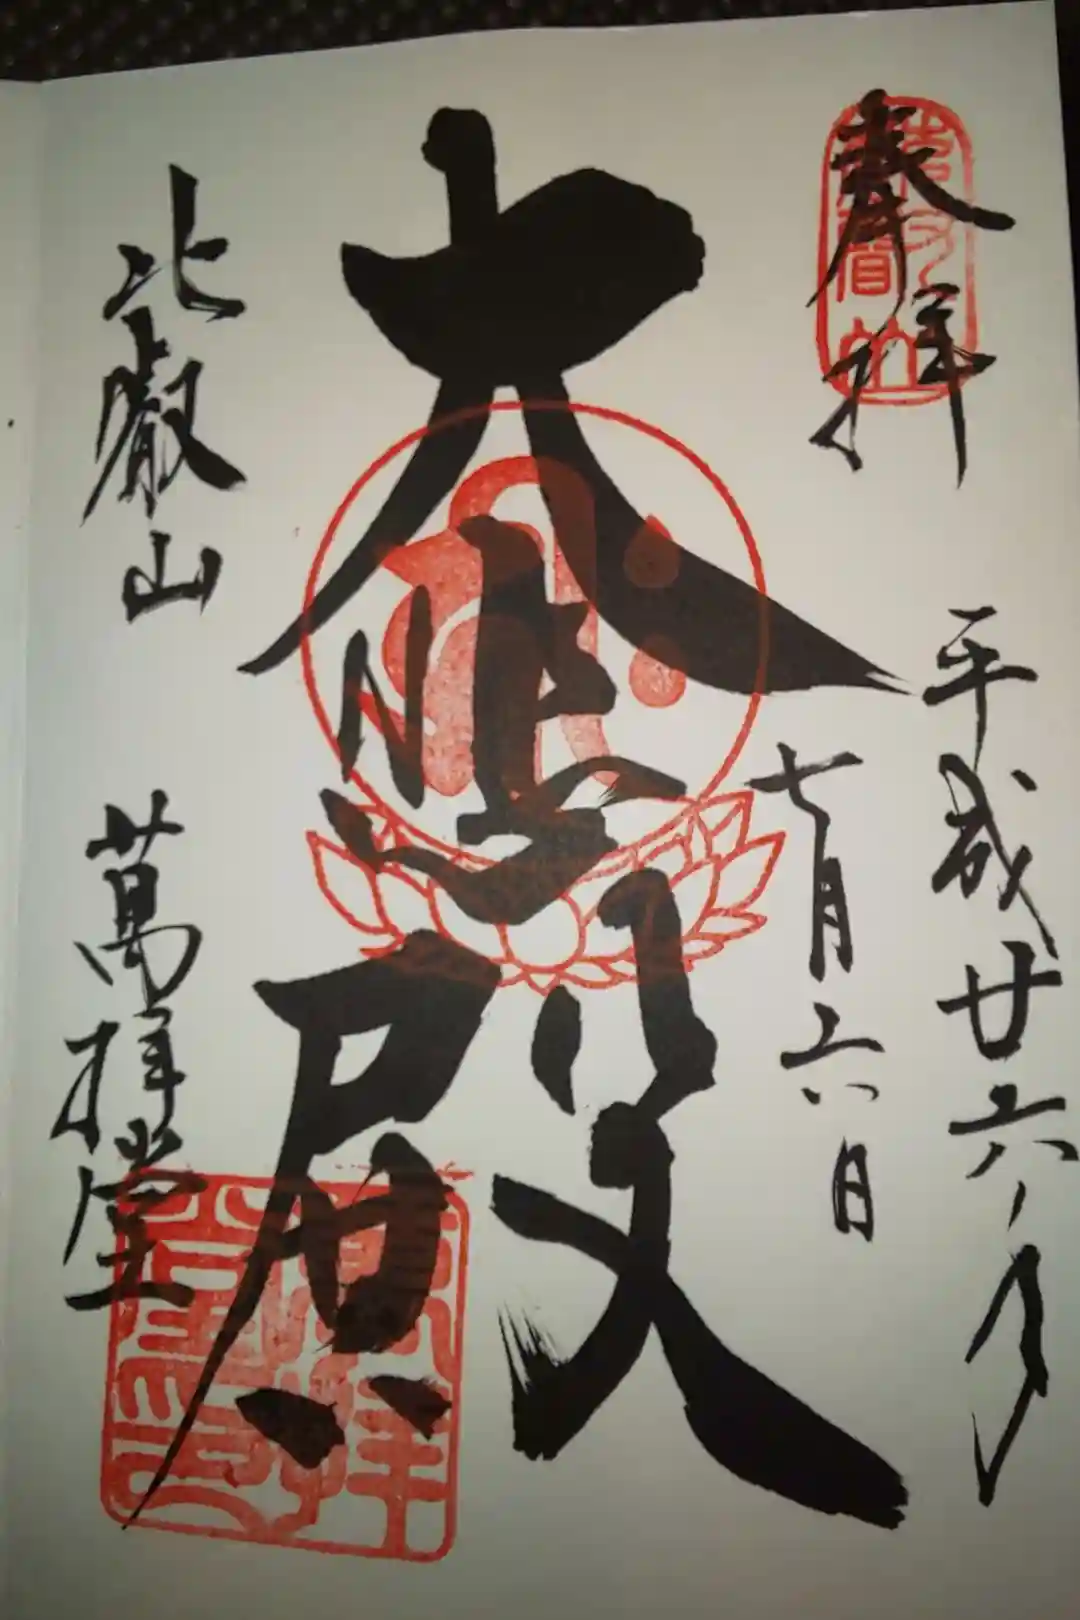 奉拝
平成廿六年
七月六日
大悲殿
比叡山 萬拝堂